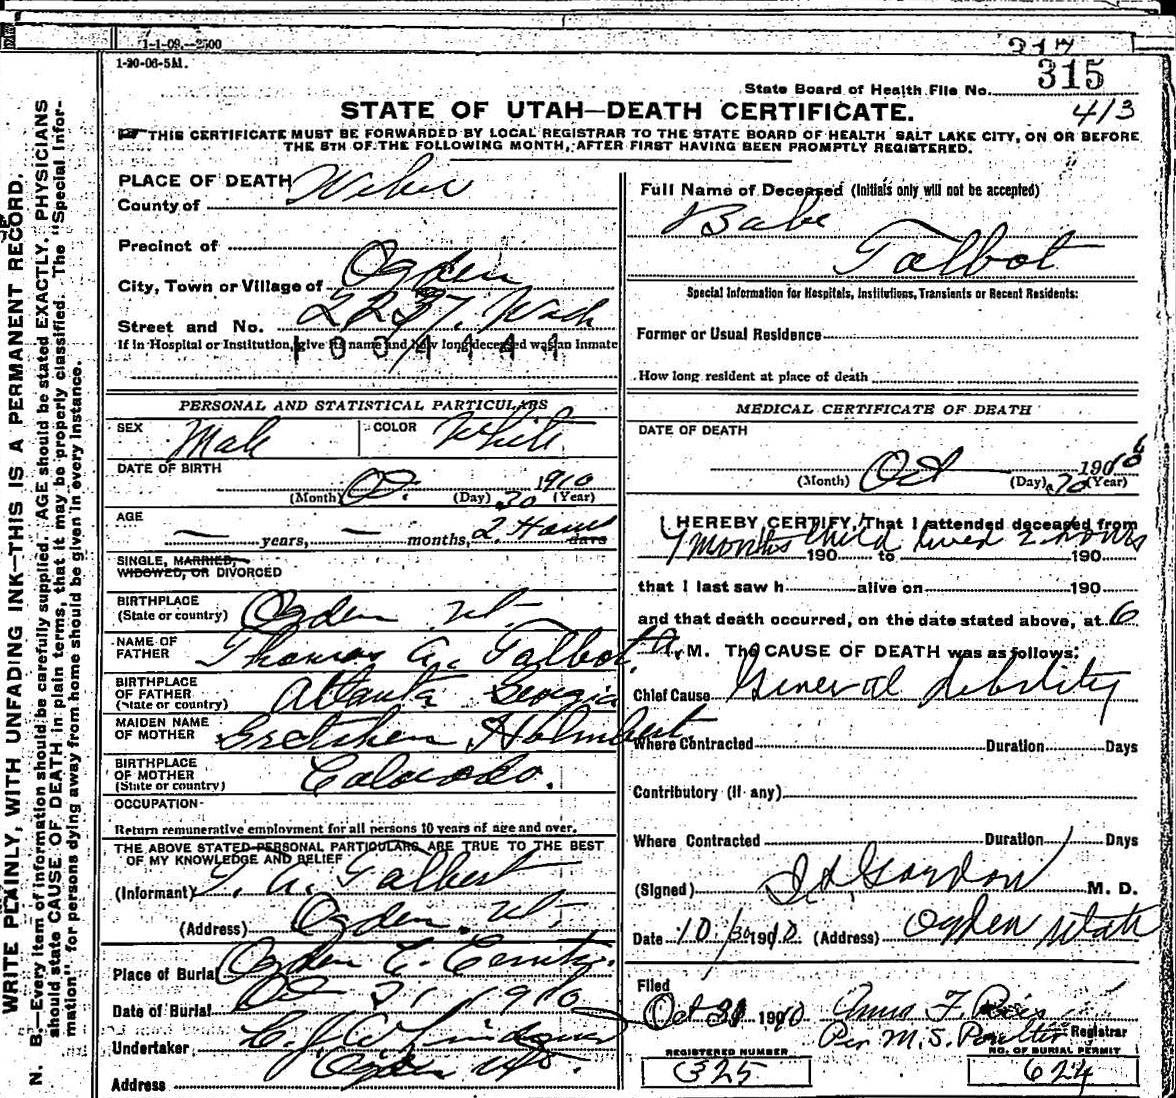 1-1-09.—2500
217
1-20-06-5M.
315
State Board of Health File No.
STATE OF UTAH—DEATH CERTIFICATE.
413
THIS CERTIFICATE MUST BE FORWARDED BY LOCAL REGISTRAR TO THE STATE BOARD OF HEALTH SALT LAKE CITY, ON OR BEFORE
THE 5TH OF THE FOLLOWING MONTH, AFTER FIRST HAVING BEEN PROMPTLY REGISTERED.
WRITE PLAINLY, WITH UNFADING INK—THIS IS A PERMANENT RECORD.
N. B.—Every item of information should be carefully supplied. AGE should be stated EXACTLY. PHYSICIANS
should state CAUSE OF DEATH in plain terms, that it may be properly classified. The "Special Infor-
mation" for persons dying away from home should be given in every instance.
PLACE OF DEATH
County of Weber
Precinct of
City, Town or Village of Ogden
Street and No. 2237 Wash
If in Hospital or Institution, give its name and how long deceased was an Inmate
1004444
PERSONAL AND STATISTICAL PARTICULARS
SEX Male COLOR White
DATE OF BIRTH
Oct 30 1910
(Month) (Day) (Year)
AGE
— years, — months, 2 Hours days
SINGLE, MARRIED,
WIDOWED, OR DIVORCED
BIRTHPLACE
(State or country) Ogden Ut
NAME OF
FATHER Thomas A. Talbot
BIRTHPLACE
OF FATHER
(State or country) Atlanta Georgia
MAIDEN NAME
OF MOTHER Gretchen
BIRTHPLACE
OF MOTHER
(State or country) Colorado.
OCCUPATION
Return remunerative employment for all persons 10 years of age and over.
THE ABOVE STATED PERSONAL PARTICULARS ARE TRUE TO THE BEST
OF MY KNOWLEDGE AND BELIEF
(Informant) T. A. Talbert
(Address) Ogden. Ut.
Place of Burial Ogden C.
Date of Burial Oct 31 1910
Undertaker
Address Ogden
Full Name of Deceased (Initials only will not be accepted)
Babe
Talbot
Special Information for Hospitals, Institutions, Transients or Recent Residents:
Former or Usual Residence
How long resident at place of death
MEDICAL CERTIFICATE OF DEATH
DATE OF DEATH
Oct 30 1910
(Month) (Day) (Year)
I HEREBY CERTIFY, That I attended deceased from
7 months Child lived 2 hours
190 to 190
that I last saw h alive on 190
and that death occurred, on the date stated above, at 6
a. M. The CAUSE OF DEATH was as follows:
Chief Cause General debility
Where Contracted Duration Days
Contributory (if any)
Where Contracted Duration Days
(Signed) Gordon M. D.
Date 10/30 1910. (Address) Ogden Utah
Filed
Oct 31 1910 Anna F.
Per M. S. Poulter Registrar
REGISTERED NUMBER
325
NO. OF BURIAL PERMIT
624